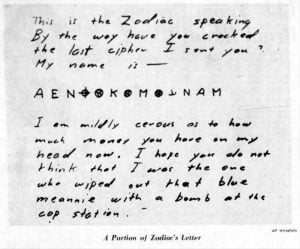 This is the Zodiac speaking
By the way have you cracked
the last cipher I sent you?
My name is —
A E N ⌖ ⊗ K ⊗ M ⊗ ⅃ N A M
I am mildly cerous as to how
much money you have on my
head now. I hope you do not
think that I was the one
who wiped out that blue
meannie with a bomb at the
cop station.
AP Wirephoto
A Portion of Zodiac's Letter